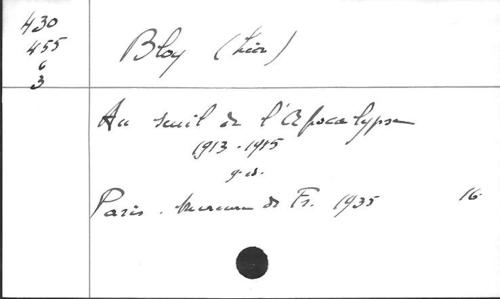 430
455
6
3
Bloy (Léon)
Au seuil de l'Apocalypse
1913-1915
9e éd.
Paris. Mercure de Fr. 1935 16